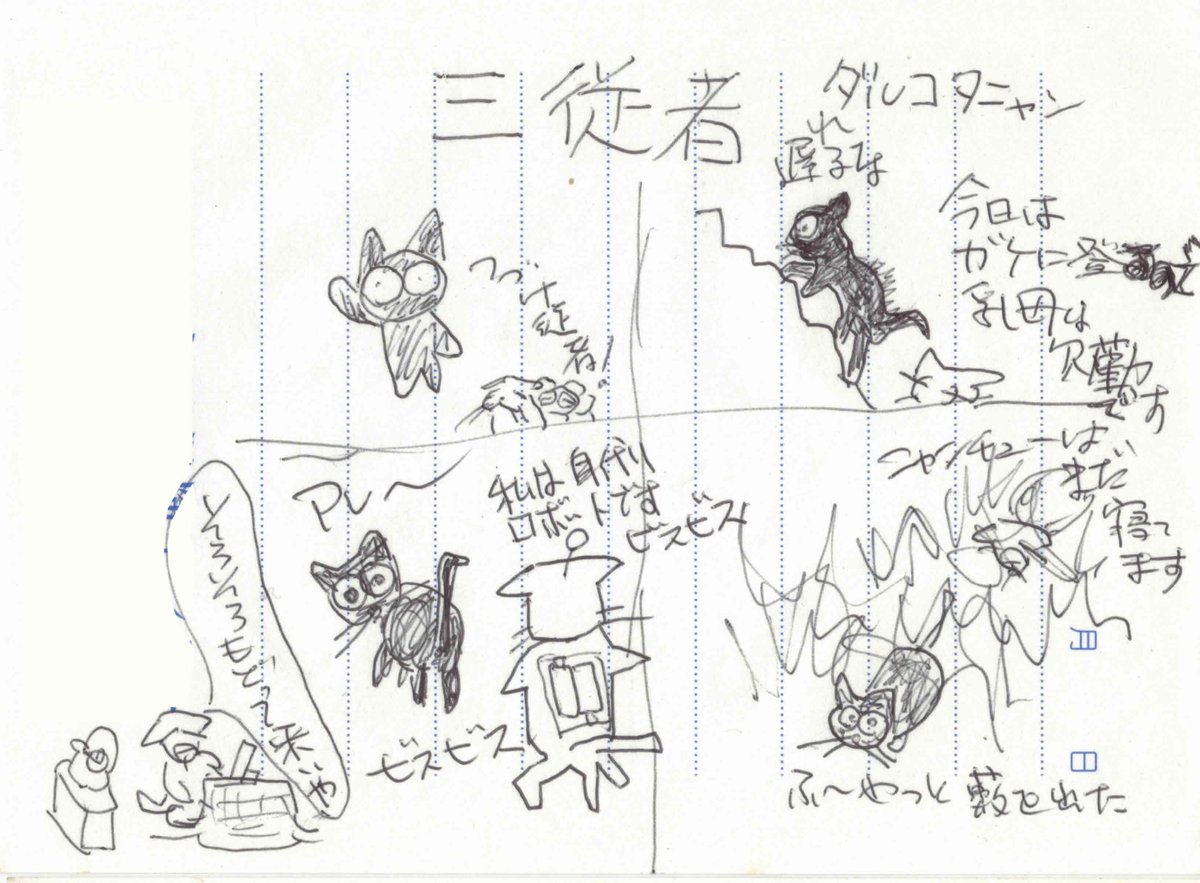 三従者
ダルコタニャン
遅れ
るな
今日は
ガケに登
乳母は
欠勤
です
つづけ
従者!
ニャンチューは
まだ
寝て
ます
ふ〜やっと藪を出た
私は身代り
ロボットです
ビスビス
アレ〜
ビスビス
そろそろもどって来いや
月
日